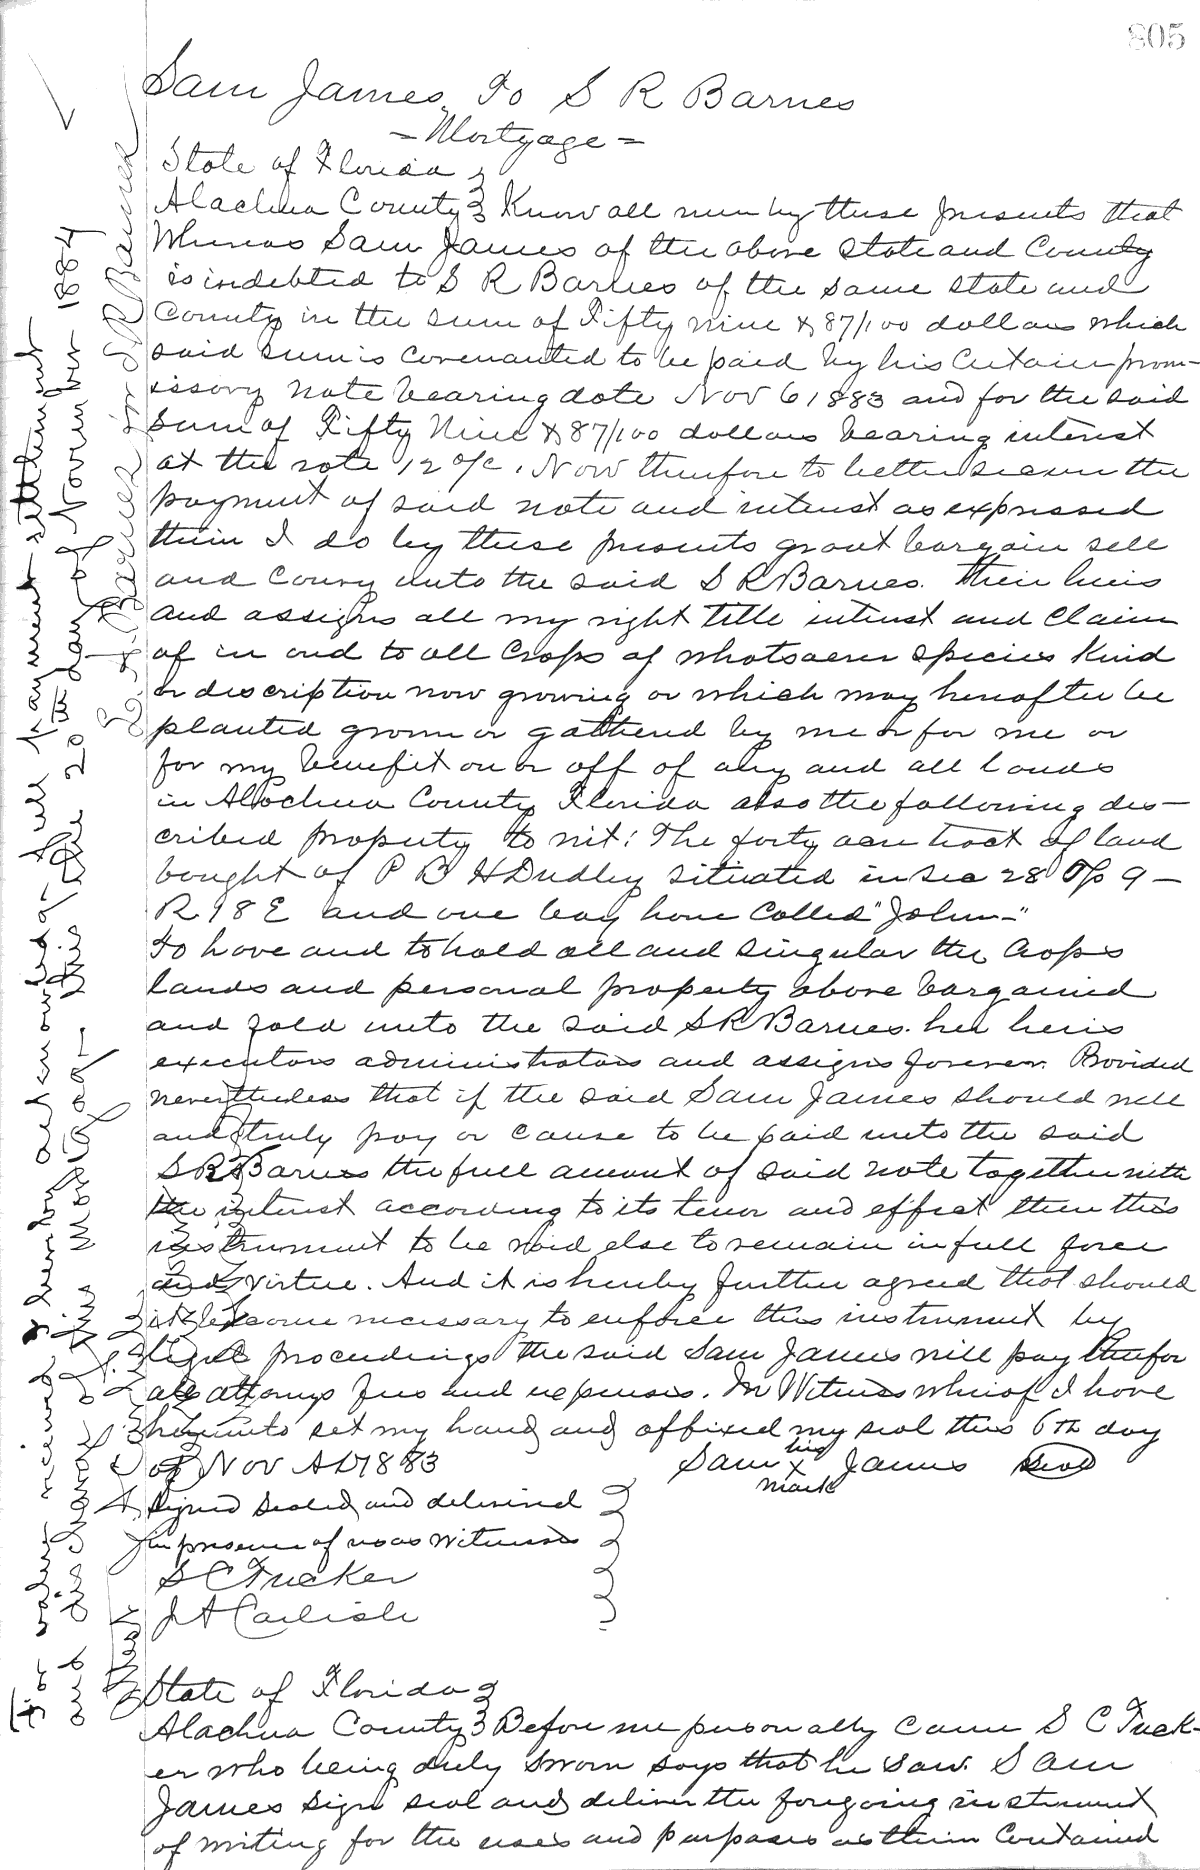 805
Sam James To S R Barnes
- Mortgage -
State of Florida
Alachua County Know all men by these presents that
Whereas Sam James of the above state and County
is indebted to S R Barnes of the same state and
County in the sum of Fifty Nine & 87/100 dollars which
said sum is covenanted to be paid by his Certain prom-
issory note bearing date Nov 6 1883 and for the said
sum of Fifty Nine & 87/100 dollars bearing interest
at the rate 12 o/c. Now therefore to better secure the
payment of said note and interest as expressed
therin I do by these presents grant bargain sell
and convey unto the said S R Barnes. Their heirs
and assigns all my right title interest and Claim
of in and to all Crops of whatsoever species Kind
or discription now growing or which may hereafter be
planted grown or gathered by me or for me or
for my benefit on or off of any and all lands
in Alachua County Florida also the following des-
cribed property to wit: The forty acre tract of land
bought of P B H Dudley situated in Sec 28 Tp 9-
R 18 E and one bay horse Called "John-"
To have and to hold all and singular the Crops
lands and personal property above bargained
and sold unto the said S R Barnes. her heirs
executors administrators and assigns forever. Provided
nevertheless that if the said Sam James should well
and truly pay or cause to be paid unto the said
S R Barnes the full amount of said note together with
the interest according to its tenor and effect then this
instrument to be void else to remain in full force
and virtue. And it is hereby further agreed that should
it become necessary to enforce this instrument by
legal proceedings the said Sam James will pay therefor
all attorneys fees and expenses. In Witness whereof I have
hereunto set my hand and affixed my seal this 6th day
of Nov AD 1883 Sam his X mark James Seal
Signed Sealed and delivered
in presence of us as Witnesses
S C Tucker
J A Carlisle
State of Florida
Alachua County Before me personally came S C Tuck-
er who being duly sworn says that he saw Sam
James sign seal and deliver the foregoing instrument
of writing for the uses and purposes as therin Contained
For value received I hereby acknowledge full payment settlement
and this Mortgage this the 20th day of November 1884